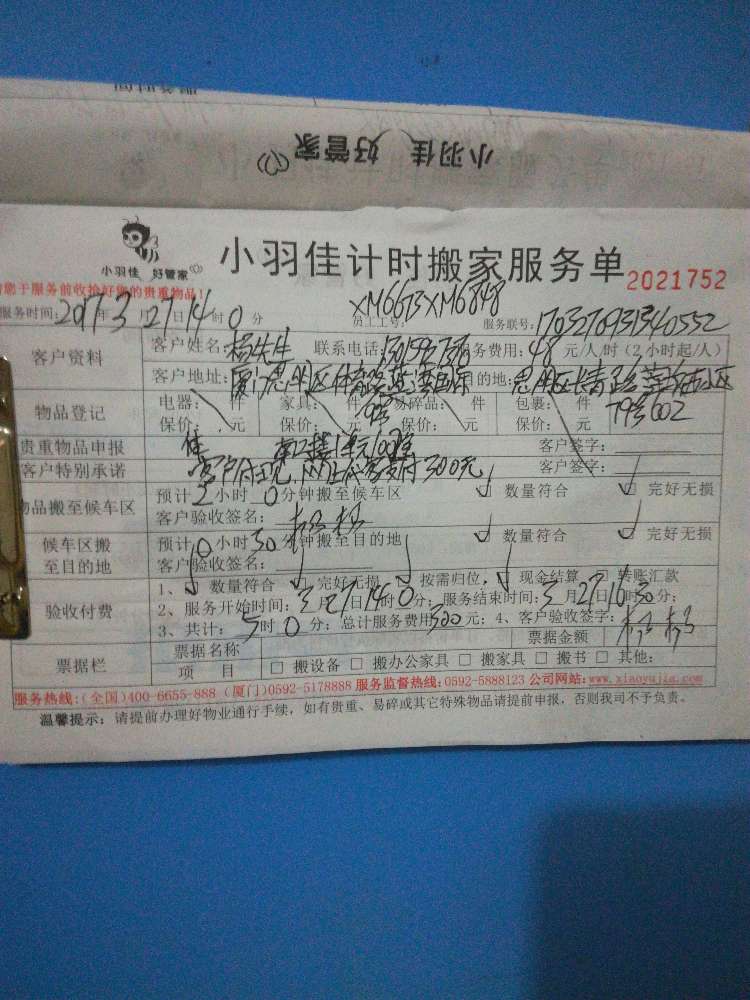 小羽佳 好管家
小羽佳 好管家
小羽佳计时搬家服务单 2021752
您于服务前收拾好您的贵重物品！
XM6673XM6848
服务时间：2017年3月27日14时0分 员工工号： 服务联号：
客户资料
客户姓名：杨先生 联系电话： 服务费用：48元/人/时(2小时起/人)
客户地址：厦门思明区体育路 目的地：思明区长青路
79号602
物品登记
电器： 件 家具： 件 易碎品： 件 包裹： 件
保价： 元 保价： 元 保价： 元 保价： 元
贵重物品申报 客户签字：
客户特别承诺 客户付现，300元 客户签字：
物品搬至候车区
预计2小时0分钟搬至候车区 数量符合 完好无损
客户验收签名：
候车区搬至目的地
预计0小时30分钟搬至目的地 数量符合 完好无损
客户验收签名：
验收付费
1、数量符合 完好无损 按需归位， 现金结算 转账汇款
2、服务开始时间：3月27日14时0分；服务结束时间：3月27日16时30分；
3、共计：5时0分；总计服务费用300元；4、客户验收签字：
票据栏
票据名称 票据金额
项 目 □ 搬设备 □ 搬办公家具 □ 搬家具 □ 搬书 □ 其他：
服务热线：(全国)400-6655-888 (厦门)0592-5178888 服务监督热线：0592-5888123 公司网站：www.xiaoyujia.com
温馨提示：请提前办理好物业通行手续，如有贵重、易碎或其它特殊物品请提前申报，否则我司不予负责。